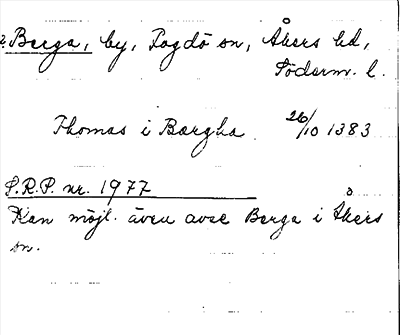 ? Berga, by, Pogdö sn, Åkers hd,
Söderm. l.
Thomas i Bærgha 26/10 1383
S.R.P. nr. 1977
Kan möjl. även avse Berga i Åkers
sn.